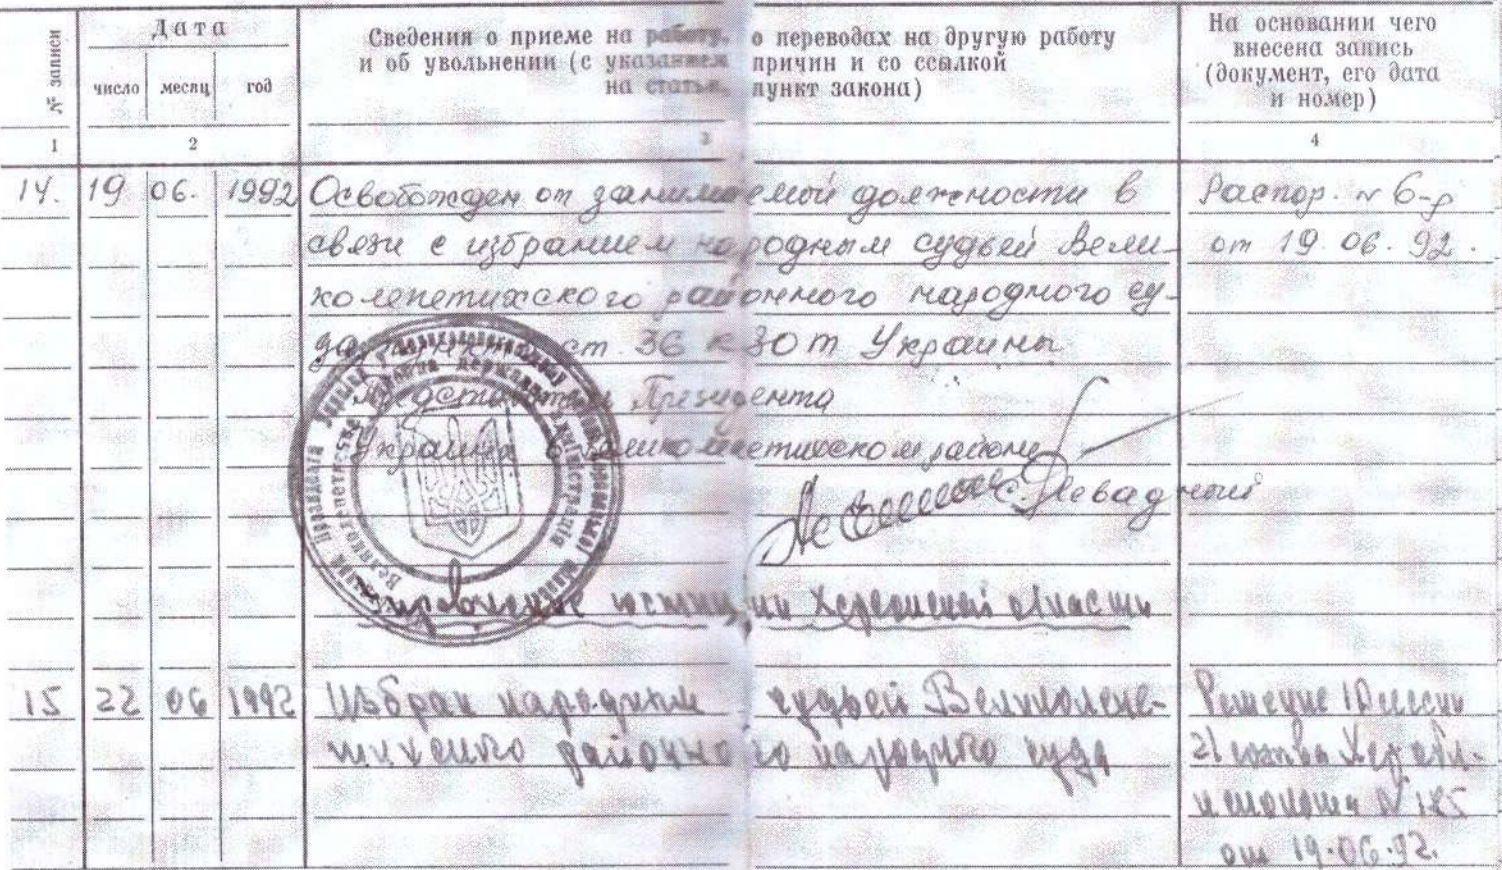 № записи
Дата
число месяц год
Сведения о приеме на работу, о переводах на другую работу
и об увольнении (с указанием причин и со ссылкой
на статью, пункт закона)
На основании чего
внесена запись
(документ, его дата
и номер)
1 2 3 4
14. 19 06. 1992 Освобожден от занимаемой должности в Распор. № 6-р
связи с избранием народным судьей Вели- от 19.06.92.
колепетихского районного народного су-
да ст 36 КЗоТ Украины
Представитель Президента
Украины в Великолепетихском районе
С. Левадный
Управление юстиции Херсонской области
15 22 06 1992 Избран народным судьей Великолепе- Решение
тихского районного народного суда 21 созыва
№ 185
от 19.06.92.